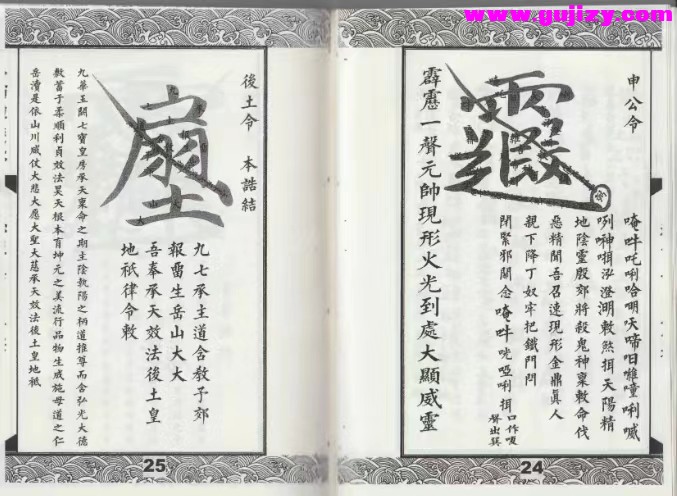 www.gujizy.com
申公令
唵吽吒唎哈
敕煞揖天陽精
地陰靈殷郊將殺鬼神稟敕命伐
惡精聞吾召速現形金鼎真人
親下降丁奴牢把鐵門閂
閉緊邪關念唵吽咣啞唎揖
口作嗄
聲出巽
霹靂一聲元帥現形火光到處大顯威靈
24
後土令 本誥結
九七承主道含教予郊
報雷生岳山大大
吾奉承天效法後土皇
地祇律令敕
九華玉闕七寶皇房承天稟命之期主陰執陽之柄道推尊而含弘光大德
數蓄于柔順利貞效法昊天根本育坤元之美流行品物生成施母道之仁
岳瀆是依山川咸仗大悲大愿大聖大慈承天效法後土皇地祇
25